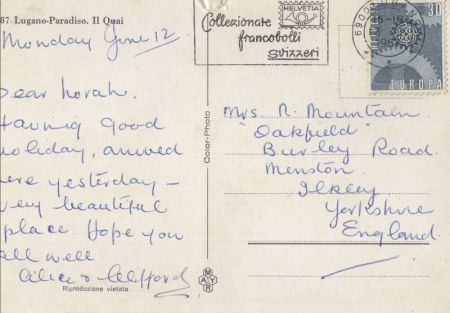 87 Lugano-Paradiso. Il Quai
Monday June 12.
Dear Norah.
Having good
holiday, arrived
here yesterday –
very beautiful
place. Hope you
all well.
Alice & Clifford
Riproduzione vietata
Color-Photo
MAYR
Collezionate
francobolli
svizzeri
HELVETIA
6900
30
EUROPA
Mrs. N. Mountain
"Oakfield"
Burley Road.
Menston.
Ilkley
Yorkshire
England.